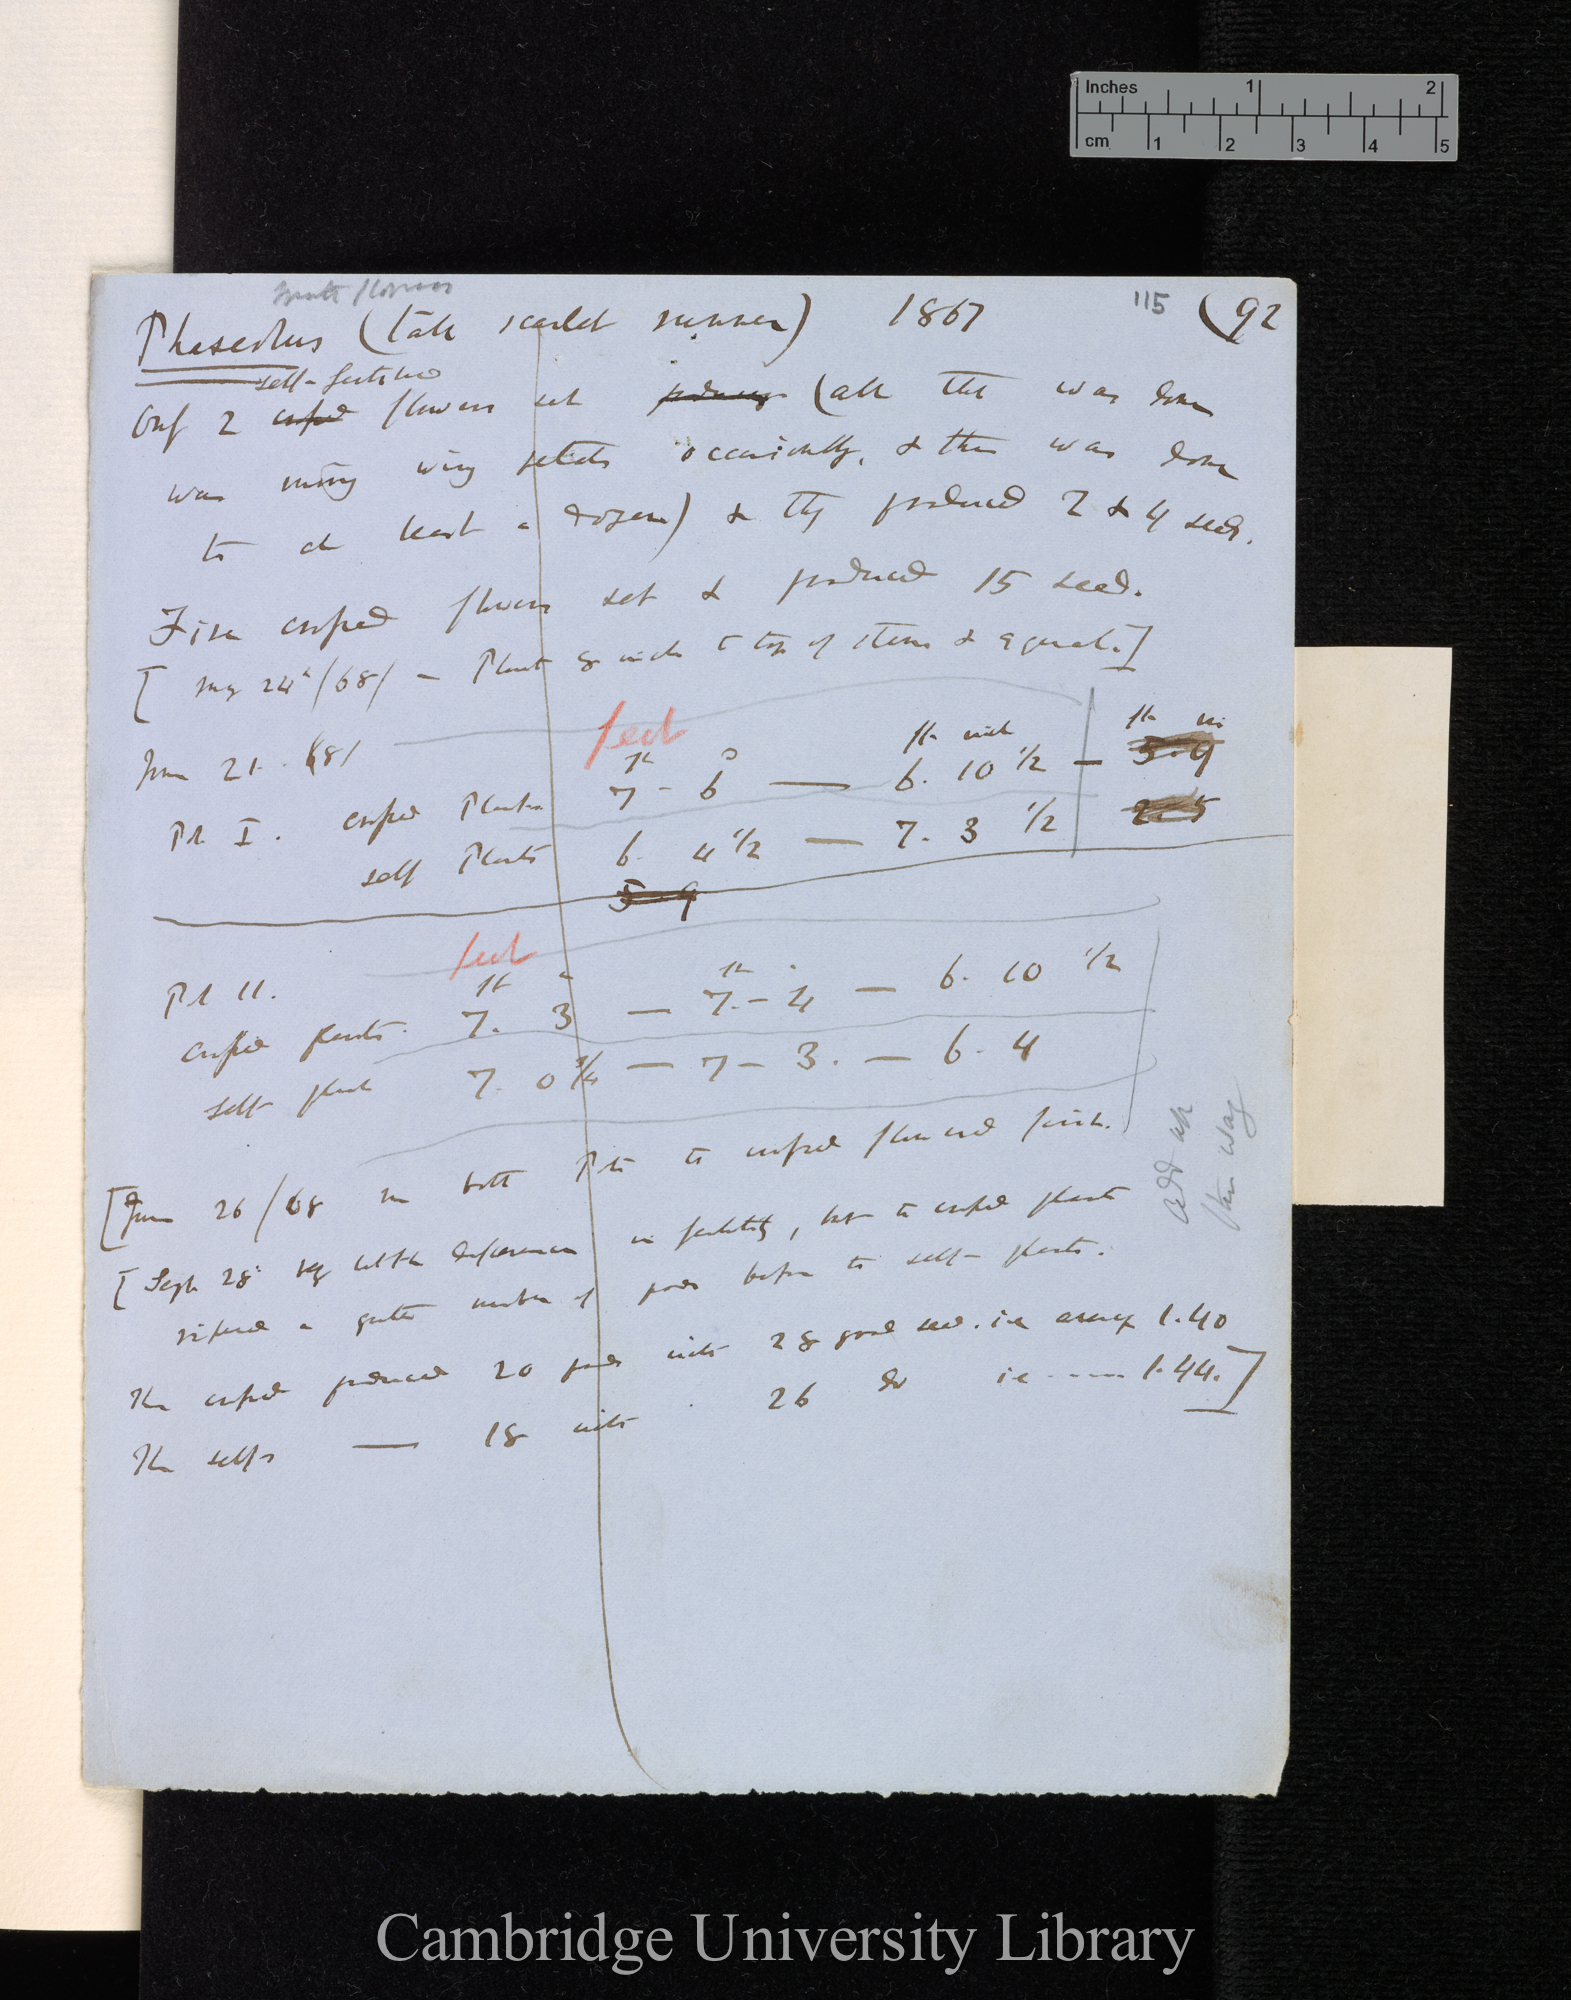 Inches 1 2
cm 1 2 3 4 5
115 (92
Phaseolus (tall scarlet runner) 1867
self-fertilised
Only 2 crossed flowers set (all that was done
was moving wing petals occasionally, & this was done
to at least a dozen) & they produced 2 & 4 seeds.
Five crossed flowers set & produced 15 seed.
[May 24th/68/ — Plants 8 inch to top of stem & equal.]
feet
June 21. 68/ ft inch ft in
Pot I. crossed Plants 7 - 6 — 6. 10 1/2 — 5.9
self Plants 6. 4 1/2 — 7. 3 1/2 2.5
5-9
feet
Pot II. ft ft
crossed plants. 7. 3 — 7. - 4 — 6. 10 1/2
self plants 7. 0 3/4 — 7 - 3. — 6. 4
add up
this way
[June 26/68 in both Pots the crossed flowered first.
[Sept 28 very little difference in fertility, but the crossed plants
ripened a greater number of pods before the self-plants.
The crossed produced 20 pods with 28 good seed. i.e. average 1.40
The selfs — 18 with 26 do i.e. ---- 1.44.]
Cambridge University Library